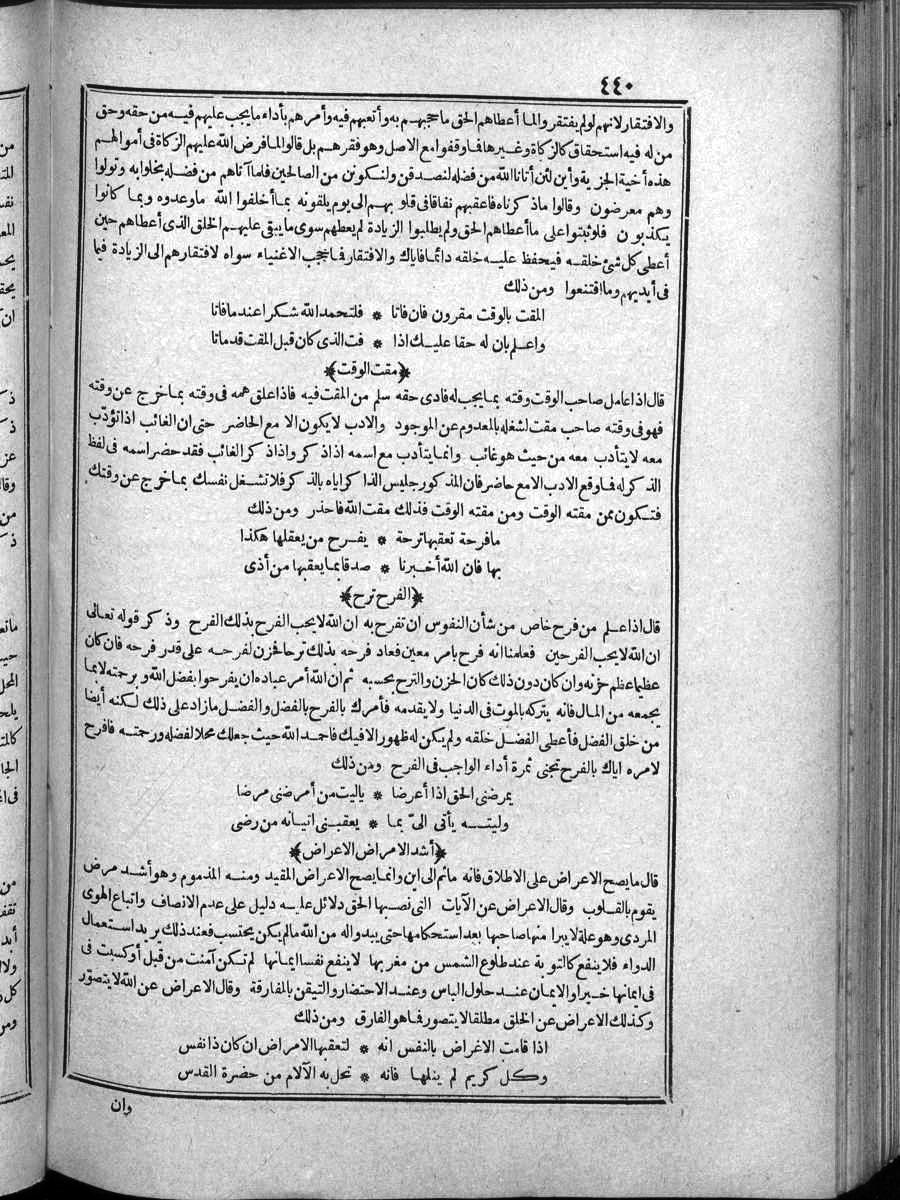 ٤٤٠
والافتقار لانهم لو لم يفتقروا لما أعطاهم الحق ما حجبهم به وأتعبهم فيه وأمرهم بأداء ما يجب عليهم فيه من حقه وحق
من له فيه استحقاق كالزكاة وغيرها فما وقفوا مع الاصل وهو فقرهم بل قالوا لما فرض الله عليهم الزكاة فى أموالهم
هذه أخية الجزية وأين لئن أتانا الله من فضله لنصدقن ولنكونن من الصالحين فلما آتاهم من فضله بخلوا به وتولوا
وهم معرضون وقالوا ما ذكرناه فاعقبهم نفاقا فى قلوبهم الى يوم يلقونه بما أخلفوا الله ما وعدوه وبما كانوا
يكذبون فلو ثبتوا على ما أعطاهم الحق ولم يطلبوا الزيادة لم يعطهم سوى ما يبقى عليهم الخلق الذى أعطاهم حين
أعطى كل شئ خلقه فيحفظ عليه خلقه دائما فاياك والافتقار فما حجب الاغنياء سواه لافتقارهم الى الزيادة فيما
فى أيديهم وما اقتنعوا ومن ذلك
المقت بالوقت مقرون فان فاتا * فلتحمد الله شكرا عندما فاتا
واعلم بان له حقا عليك اذا * فت الذى كان قبل المقت قد ماتا
﴿مقت الوقت﴾
قال اذا عامل صاحب الوقت وقته بما يجب له فادى حقه سلم من المقت فيه فاذا علق همه فى وقته بما خرج عن وقته
فهو فى وقته صاحب مقت لشغله بالمعدوم عن الموجود والادب لا يكون الا مع الحاضر حتى ان الغائب اذا تؤدّب
معه لا يتأدب معه من حيث هو غائب وانما يتأدب مع اسمه اذا ذكر واذا ذكر الغائب فقد حضر اسمه فى لفظ
الذاكر له فما وقع الادب الا مع حاضر فان المذكور جليس الذاكر اياه بالذكر فلا تشغل نفسك بما خرج عن وقتك
فتكون ممن مقته الوقت ومن مقته الوقت فذلك مقت الله فاحذر ومن ذلك
ما فرحة تعقبها ترحة * يفرح من يعقلها هكذا
بها فان الله أخبرنا * صدقا بما يعقبها من أذى
﴿الفرح ترح﴾
قال اذا علم من فرح خاص من شأن النفوس ان تفرح به ان الله لا يحب الفرح بذلك الفرح وذكر قوله تعالى
ان الله لا يحب الفرحين فعلمنا انه فرح بامر معين فعاد فرحه بذلك ترحا فحزن لفرحه على قدر فرحه فان كان
عظيما عظم حزنه وان كان دون ذلك كان الحزن والترح بحسبه ثم ان الله أمر عباده ان يفرحوا بفضل الله وبرحمته لا بما
يجمعه من المال فانه يتركه بالموت فى الدنيا ولا يقدمه فأمرك بالفرح بالفضل والفضل ما زاد على ذلك لكنه أيضا
من خلق الفضل فأعطى الفضل خلقه ولم يكن له ظهور الا فيك فاحمد الله حيث جعلك محلا لفضله ورحمته فافرح
لامره اياك بالفرح تجنى ثمرة أداء الواجب فى الفرح ومن ذلك
يمرضنى الحق اذا أعرضا * ياليت من أمرضنى مرضا
وليته يأتى الىّ بما * يعقبنى اتيانه من رضى
﴿أشد الامراض الاعراض﴾
قال ما يصح الاعراض على الاطلاق فانه ما ثم الى اين وانما يصح الاعراض المقيد ومنه المذموم وهو أشد مرض
يقوم بالقلوب وقال الاعراض عن الآيات التى نصبها الحق دلائل عليه دليل على عدم الانصاف واتباع الهوى
المردى وهو علة لا يبرا منها صاحبها بعد استحكامها حتى يبدو له من الله ما لم يكن يحتسب فعند ذلك يريد استعمال
الدواء فلا ينفع كالتوبة عند طلوع الشمس من مغربها لا ينفع نفسا ايمانها لم تكن آمنت من قبل أو كسبت فى
فى ايمانها خيرا والايمان عند حلول الباس وعند الاحتضار والتيقن بالمفارقة وقال الاعراض عن الله لا يتصوّر
وكذلك الاعراض عن الخلق مطلقا لا يتصور فما هو الفارق ومن ذلك
اذا قامت الاغراض بالنفس انه * لتعقبها الامراض ان كان ذا نفس
وكل كريم لم ينلها فانه * تحل به الآلام من حضرة القدس
وان